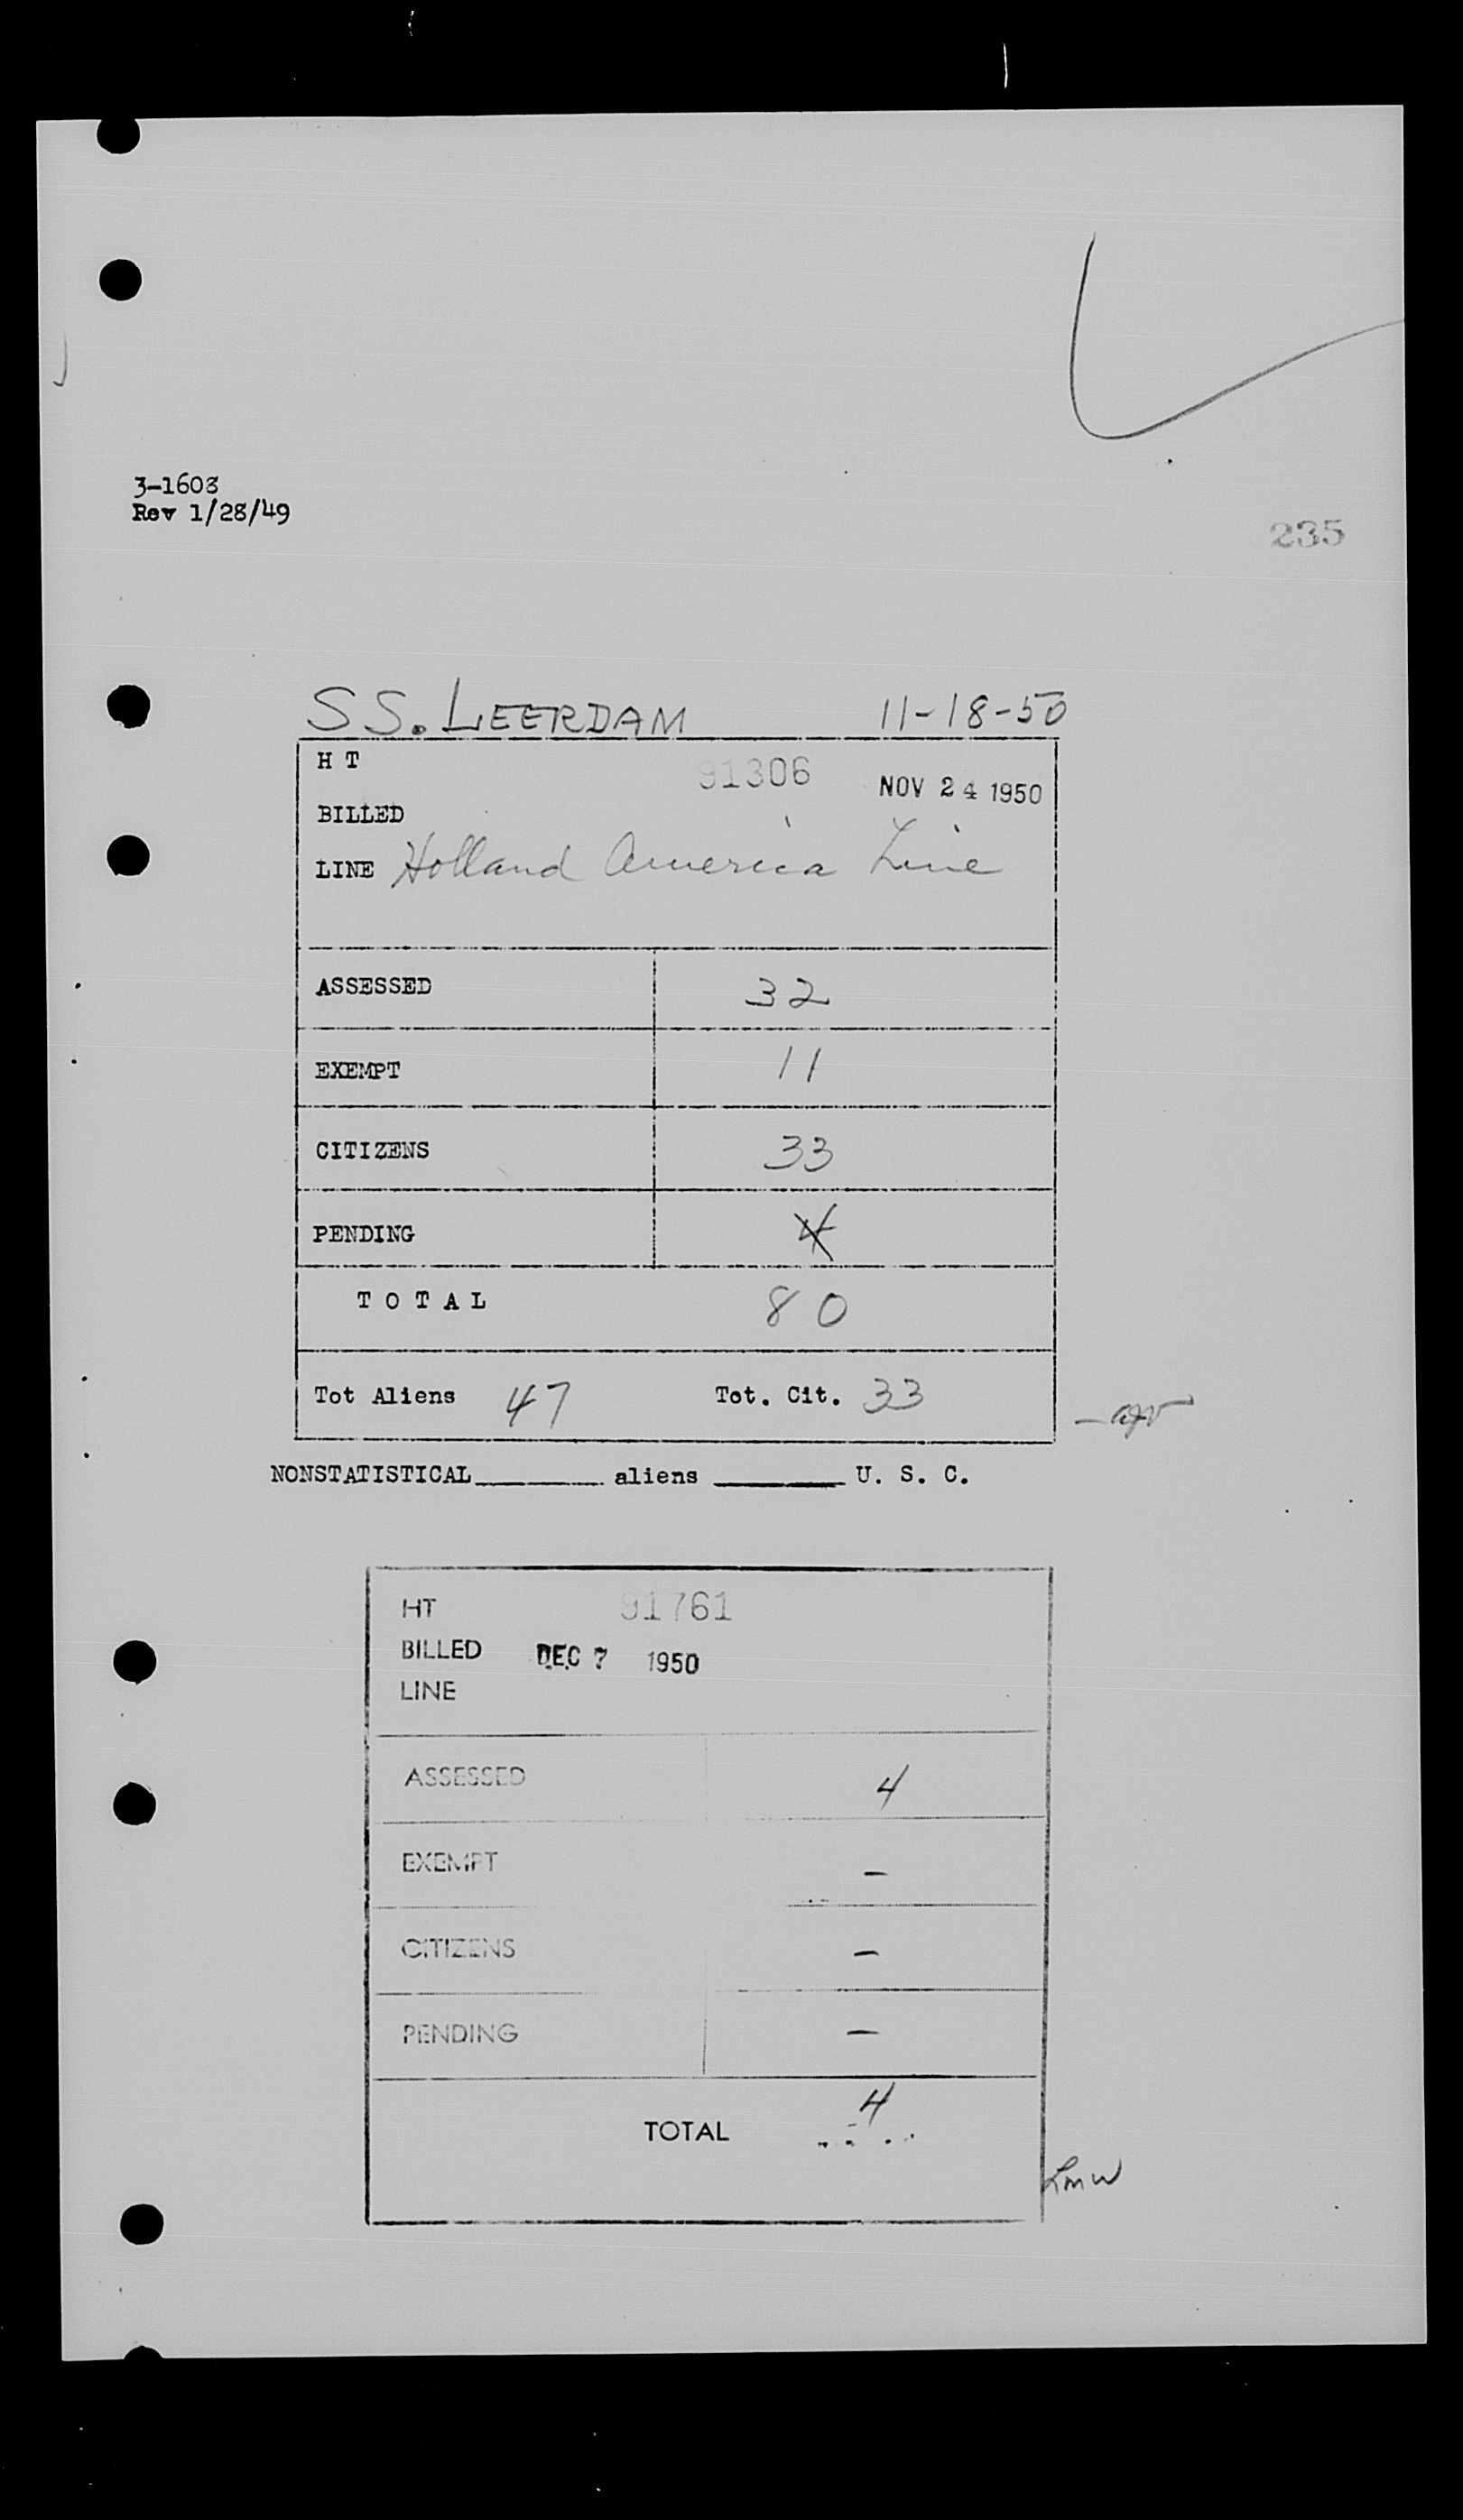 3-1608
Rev 1/28/49
235
SS. LEERDAM 11-18-50
H T 91306 NOV 24 1950
BILLED
LINE Holland America Line
ASSESSED 32
EXEMPT 11
CITIZENS 33
PENDING 4
T O T A L 80
Tot Aliens 47 Tot. Cit. 33
NONSTATISTICAL________ aliens ________ U. S. C.
HT 91761
BILLED DEC 7 1950
LINE
ASSESSED 4
EXEMPT —
CITIZENS —
PENDING —
TOTAL 4
Lmw